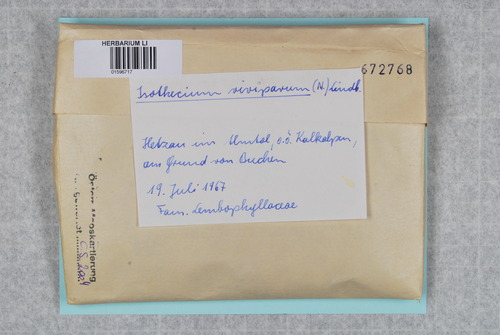 HERBARIUM LI
01596717
672768
Isothecium viviparum (N.) Lindb.
Hetzau im Almtal, o.ö. Kalkalpen,
am Grund von Buchen
19. Juli 1967
Fam. Lembophyllaceae
Mooskartierung